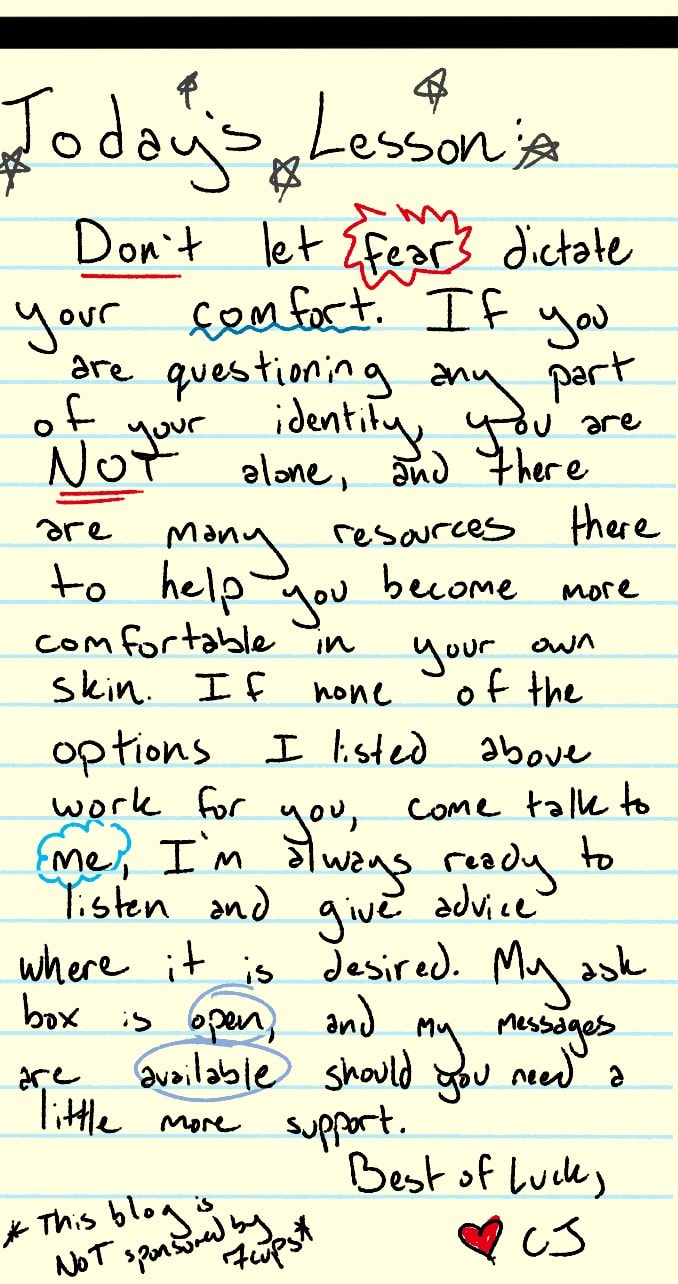 Today's Lesson:
Don't let fear dictate
your comfort. If you
are questioning any part
of your identity, you are
NOT alone, and there
are many resources there
to help you become more
comfortable in your own
skin. If none of the
options I listed above
work for you, come talk to
me, I'm always ready to
listen and give advice
where it is desired. My ask
box is open, and my messages
are available should you need a
little more support.
Best of Luck,
CJ
*This blog is
NOT sponsored by
7cups*